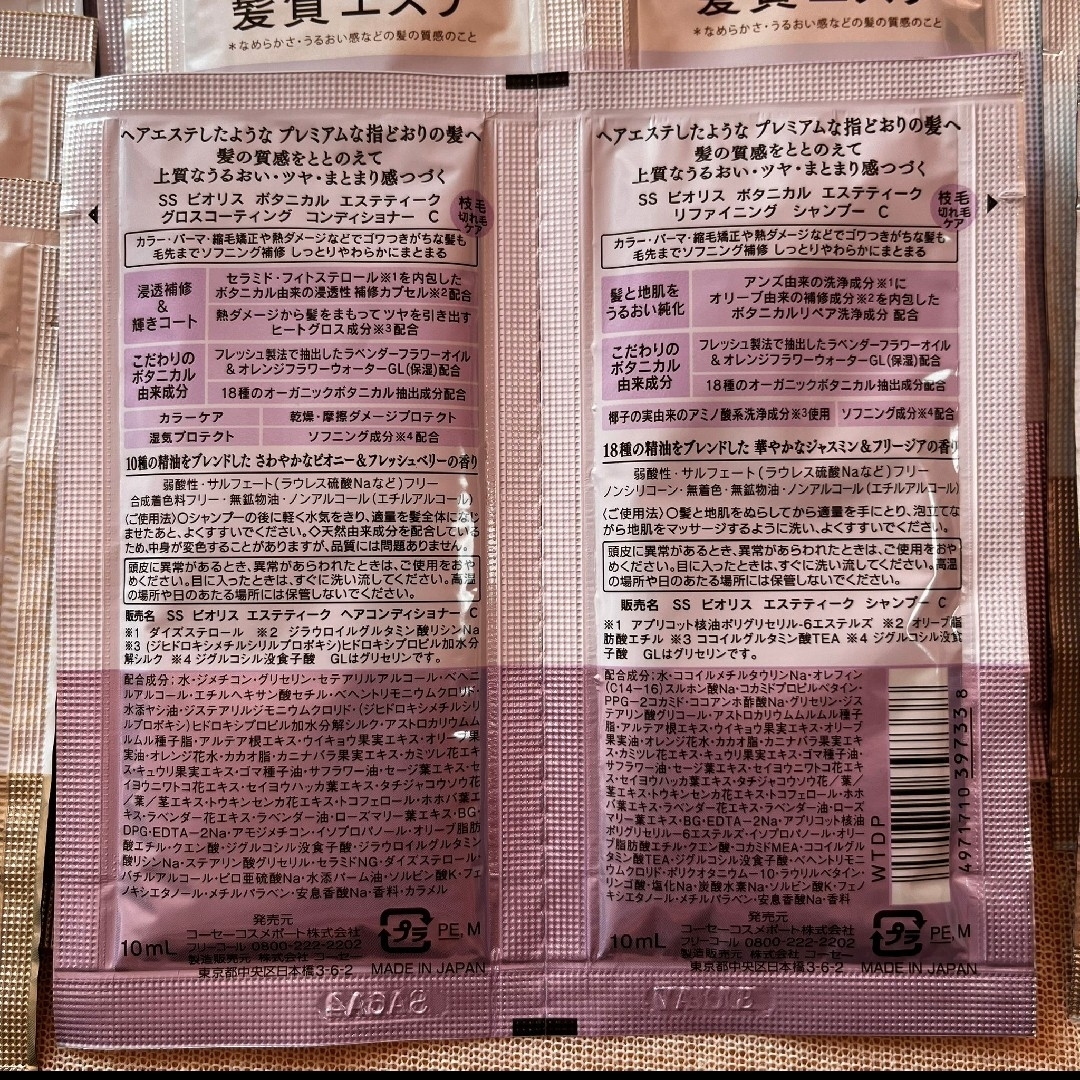 髪質エステ
*なめらかさ・うるおい感などの髪の質感のこと
髪質エステ
*なめらかさ・うるおい感などの髪の質感のこと
ヘアエステしたような プレミアムな指どおりの髪へ
髪の質感をととのえて
上質なうるおい・ツヤ・まとまり感つづく
SS ビオリス ボタニカル エステティーク
グロスコーティング コンディショナー C
枝毛
切れ毛
ケア
カラー・パーマ・縮毛矯正や熱ダメージなどでゴワつきがちな髪も
毛先までソフニング補修 しっとりやわらかにまとまる
浸透補修
&
輝きコート
セラミド・フィトステロール※1を内包した
ボタニカル由来の浸透性補修カプセル※2配合
熱ダメージから髪をまもってツヤを引き出す
ヒートグロス成分※3配合
こだわりの
ボタニカル
由来成分
フレッシュ製法で抽出したラベンダーフラワーオイル
&オレンジフラワーウォーターGL(保湿)配合
18種のオーガニックボタニカル抽出成分配合
カラーケア
乾燥・摩擦ダメージプロテクト
湿気プロテクト
ソフニング成分※4配合
10種の精油をブレンドした さわやかなピオニー&フレッシュベリーの香り
弱酸性・サルフェート(ラウレス硫酸Naなど)フリー
合成着色料フリー・無鉱物油・ノンアルコール(エチルアルコール)
〈ご使用法〉〇シャンプーの後に軽く水気をきり、適量を髪全体になじ
ませたあと、よくすすいでください。◇天然由来成分を配合している
ため、中身が変色することがありますが、品質には問題ありません。
頭皮に異常があるとき、異常があらわれたときは、ご使用をおや
めください。目に入ったときは、すぐに洗い流してください。高温
の場所や日のあたる場所には保管しないでください。
販売名 SS ビオリス エステティーク ヘアコンディショナー C
※1 ダイズステロール ※2 ジラウロイルグルタミン酸リシンNa
※3 (ジヒドロキシメチルシリルプロポキシ)ヒドロキシプロピル加水分
解シルク ※4 ジグルコシル没食子酸 GLはグリセリンです。
配合成分:水・ジメチコン・グリセリン・セテアリルアルコール・ベヘニ
ルアルコール・エチルヘキサン酸セチル・ベヘントリモニウムクロリド・
水添ヤシ油・ジステアリルジモニウムクロリド・(ジヒドロキシメチルシ
リルプロポキシ)ヒドロキシプロピル加水分解シルク・アストロカリウムム
ルムル種子脂・アルテア根エキス・ウイキョウ果実エキス・オリーブ果
実油・オレンジ花水・カカオ脂・カニナバラ果実エキス・カミツレ花エキ
ス・キュウリ果実エキス・ゴマ種子油・サフラワー油・セージ葉エキス・セ
イヨウニワトコ花エキス・セイヨウハッカ葉エキス・タチジャコウソウ花
/葉/茎エキス・トウキンセンカ花エキス・トコフェロール・ホホバ葉エ
キス・ラベンダー花エキス・ラベンダー油・ローズマリー葉エキス・BG・
DPG・EDTA-2Na・アモジメチコン・イソプロパノール・オリーブ脂肪
酸エチル・クエン酸・ジグルコシル没食子酸・ジラウロイルグルタミン
酸リシンNa・ステアリン酸グリセリル・セラミドNG・ダイズステロール・
バチルアルコール・ピロ亜硫酸Na・水添パーム油・ソルビン酸K・フェ
ノキシエタノール・メチルパラベン・安息香酸Na・香料・カラメル
発売元
コーセーコスメポート株式会社
フリーコール 0800-222-2202
製造販売元 株式会社 コーセー
東京都中央区日本橋3-6-2
10mL
プラ
PE, M
MADE IN JAPAN
ヘアエステしたような プレミアムな指どおりの髪へ
髪の質感をととのえて
上質なうるおい・ツヤ・まとまり感つづく
SS ビオリス ボタニカル エステティーク
リファイニング シャンプー C
枝毛
切れ毛
ケア
カラー・パーマ・縮毛矯正や熱ダメージなどでゴワつきがちな髪も
毛先までソフニング補修 しっとりやわらかにまとまる
髪と地肌を
うるおい純化
アンズ由来の洗浄成分※1に
オリーブ由来の補修成分※2を内包した
ボタニカルリペア洗浄成分 配合
こだわりの
ボタニカル
由来成分
フレッシュ製法で抽出したラベンダーフラワーオイル
&オレンジフラワーウォーターGL(保湿)配合
18種のオーガニックボタニカル抽出成分配合
椰子の実由来のアミノ酸系洗浄成分※3使用
ソフニング成分※4配合
18種の精油をブレンドした 華やかなジャスミン&フリージアの香り
弱酸性・サルフェート(ラウレス硫酸Naなど)フリー
ノンシリコーン・無着色・無鉱物油・ノンアルコール(エチルアルコール)
〈ご使用法〉〇髪と地肌をぬらしてから適量を手にとり、泡立てな
がら地肌をマッサージするように洗い、よくすすいでください。
頭皮に異常があるとき、異常があらわれたときは、ご使用をおや
めください。目に入ったときは、すぐに洗い流してください。高温
の場所や日のあたる場所には保管しないでください。
販売名 SS ビオリス エステティーク シャンプー C
※1 アプリコット核油ポリグリセリル-6エステルズ ※2 オリーブ脂
肪酸エチル ※3 ココイルグルタミン酸TEA ※4 ジグルコシル没食
子酸 GLはグリセリンです。
配合成分:水・ココイルメチルタウリンNa・オレフィン
(C14-16)スルホン酸Na・コカミドプロピルベタイン・
PPG-2コカミド・ココアンホ酢酸Na・グリセリン・ジス
テアリン酸グリコール・アストロカリウムムルムル種子
脂・アルテア根エキス・ウイキョウ果実エキス・オリーブ
果実油・オレンジ花水・カカオ脂・カニナバラ果実エキ
ス・カミツレ花エキス・キュウリ果実エキス・ゴマ種子油・
サフラワー油・セージ葉エキス・セイヨウニワトコ花エキ
ス・セイヨウハッカ葉エキス・タチジャコウソウ花/葉/
茎エキス・トウキンセンカ花エキス・トコフェロール・ホホ
バ葉エキス・ラベンダー花エキス・ラベンダー油・ローズ
マリー葉エキス・BG・EDTA-2Na・アプリコット核油
ポリグリセリル-6エステルズ・イソプロパノール・オリー
ブ脂肪酸エチル・クエン酸・コカミドMEA・ココイルグル
タミン酸TEA・ジグルコシル没食子酸・ベヘントリモニ
ウムクロリド・ポリクオタニウム-10・ラウリルベタイン・
リンゴ酸・塩化Na・炭酸水素Na・ソルビン酸K・フェノ
キシエタノール・メチルパラベン・安息香酸Na・香料
WTDP
4971710397338
発売元
コーセーコスメポート株式会社
フリーコール 0800-222-2202
製造販売元 株式会社 コーセー
東京都中央区日本橋3-6-2
10mL
プラ
PE, M
MADE IN JAPAN